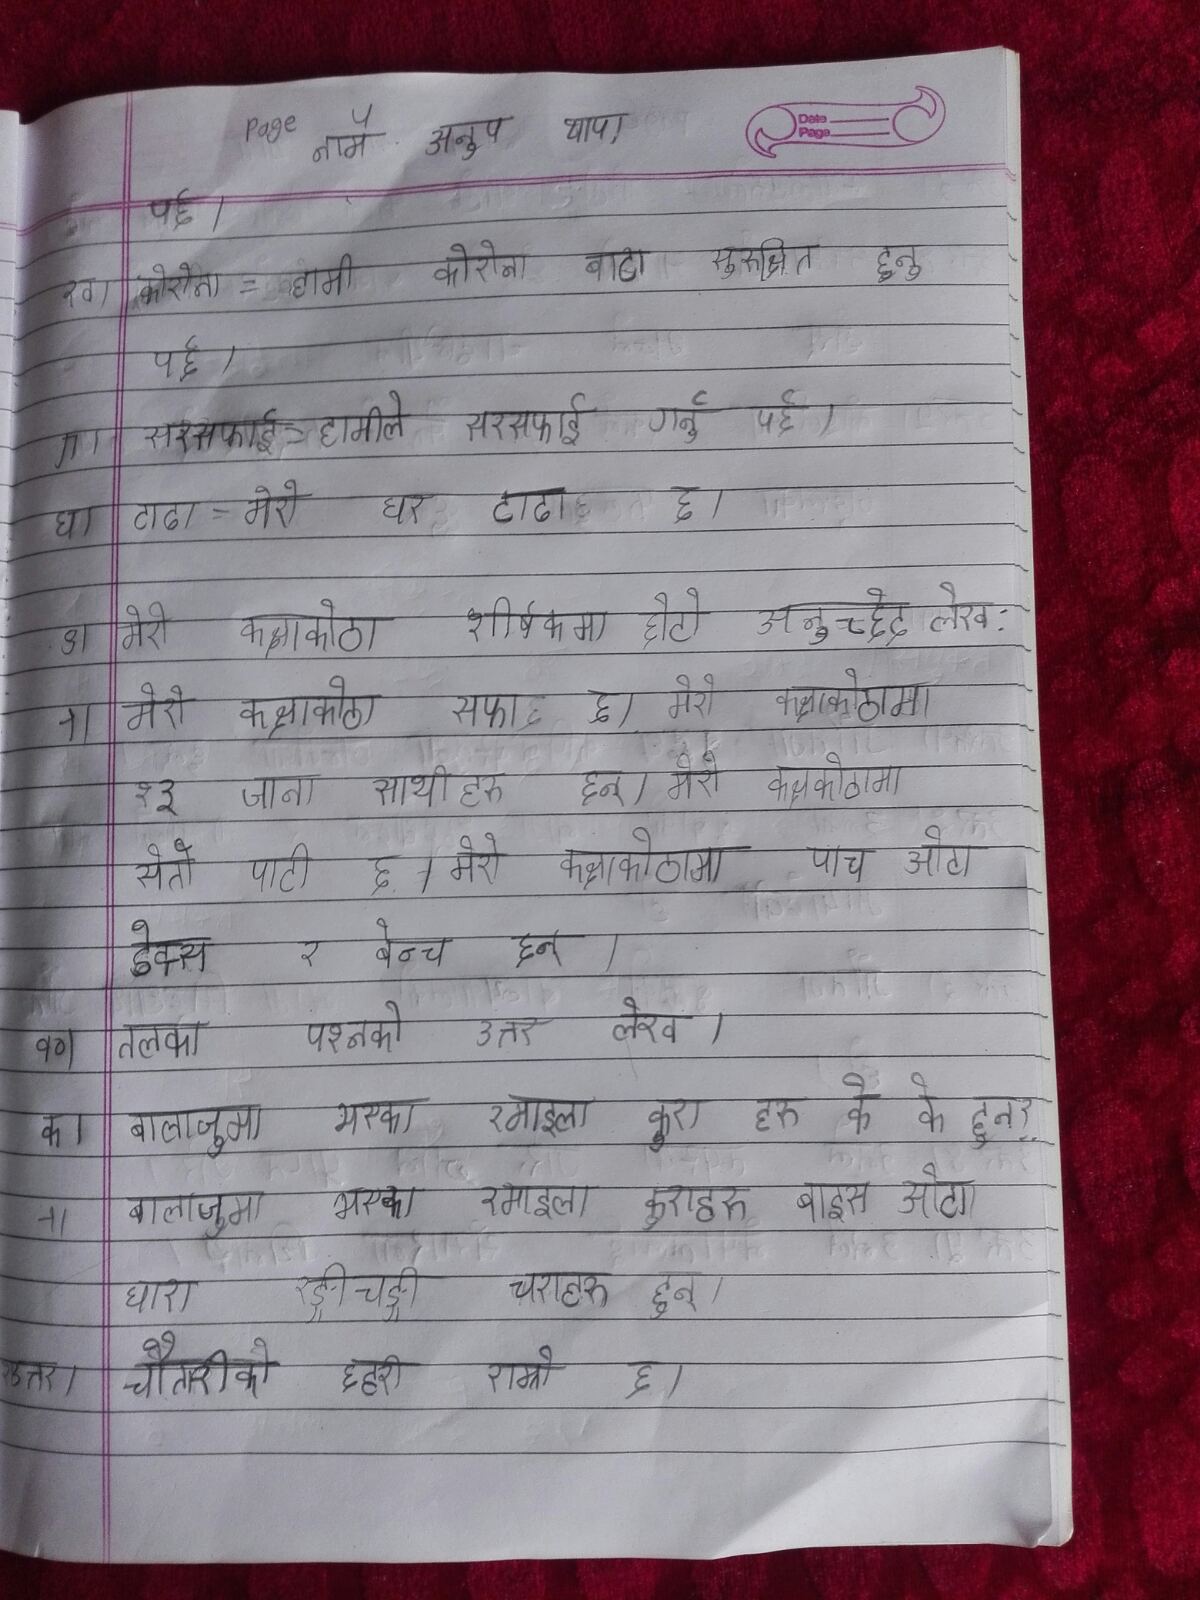 Page ५
नाम अनुप थापा
Date
Page
पर्छ ।
ख। कोरोना = हामी कोरोना बाटा सुरुक्षित हुनु
पर्छ ।
ग। सरसफाई = हामीले सरसफाई गर्नु पर्छ ।
घ। टाढा = मेरो घर टाढा छ ।
९। मेरो कक्षाकोठा शीर्षकमा छोटो अनुच्छेद लेख :
→। मेरो कक्षाकोठा सफा छ । मेरो कक्षाकोठामा
१३ जाना साथीहरु छन् । मेरो कक्षकोठामा
सेतो पाटी छ । मेरो कक्षाकोठामा पाच ओटा
डेक्स र बेन्च छन् ।
१०। तलका पश्नको उत्तर लेख ।
क। बालाजुमा भएका रमाइला कुरा हरु के के हुन ?
→। बालाजुमा भएका रमाइला कुराहरु बाइस ओटा
धारा रङ्गीचङ्गी चराहरु हुन् ।
उत्तर। चौतारीको छहरी राम्रो छ ।